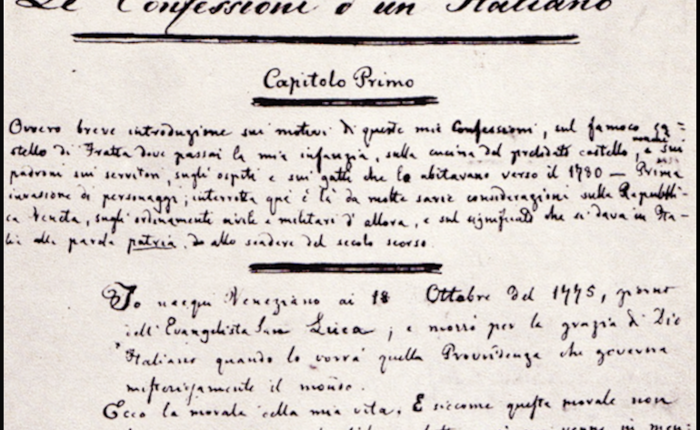 Le Confessioni d'un Italiano
Capitolo Primo
Ovvero breve introduzione sui motivi di queste mie Confessioni, sul famoso ca=
stello di Fratta dove passai la mia infanzia, sulla cucina del prelodato castello, e sui
padroni sui servitori, sugli ospiti e sui gatti che lo abitavano verso il 1780 — Prima
invasione di personaggi; interrotta qua e là da molte savie considerazioni sulla Repubbli-
ca Veneta, sugli ordinamenti civili e militari d'allora, e sul significato che si dava in Ita-
lia alla parola patria, allo scadere del secolo scorso.
Io nacqui Veneziano ai 18 Ottobre del 1775, giorno
dell'Evangelista San Luca; e morrò per la grazia di Dio
Italiano quando lo vorrà quella Provvidenza che governa
misteriosamente il mondo.
Ecco la morale della mia vita. E siccome questa morale non